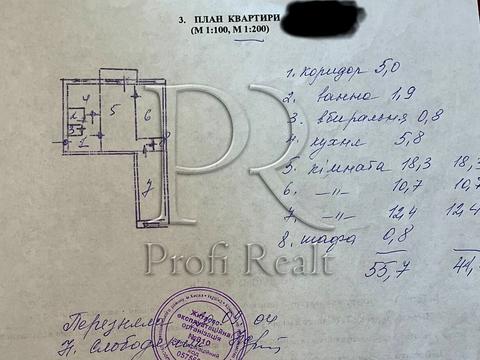 3. ПЛАН КВАРТИРИ
(М 1:100, М 1:200)
1. коридор 5,0
2. ванна 1,9
3. вбиральня 0,8
4. кухня 5,8
5. кімната 18,3 18,3
6. -"- 10,7 10,7
7. -"- 12,4 12,4
8. шафа 0,8
55,7 41,
4
5
6
2
3
1
7
PR
Profi Realt
Житлово-
експлуатаційна
організація